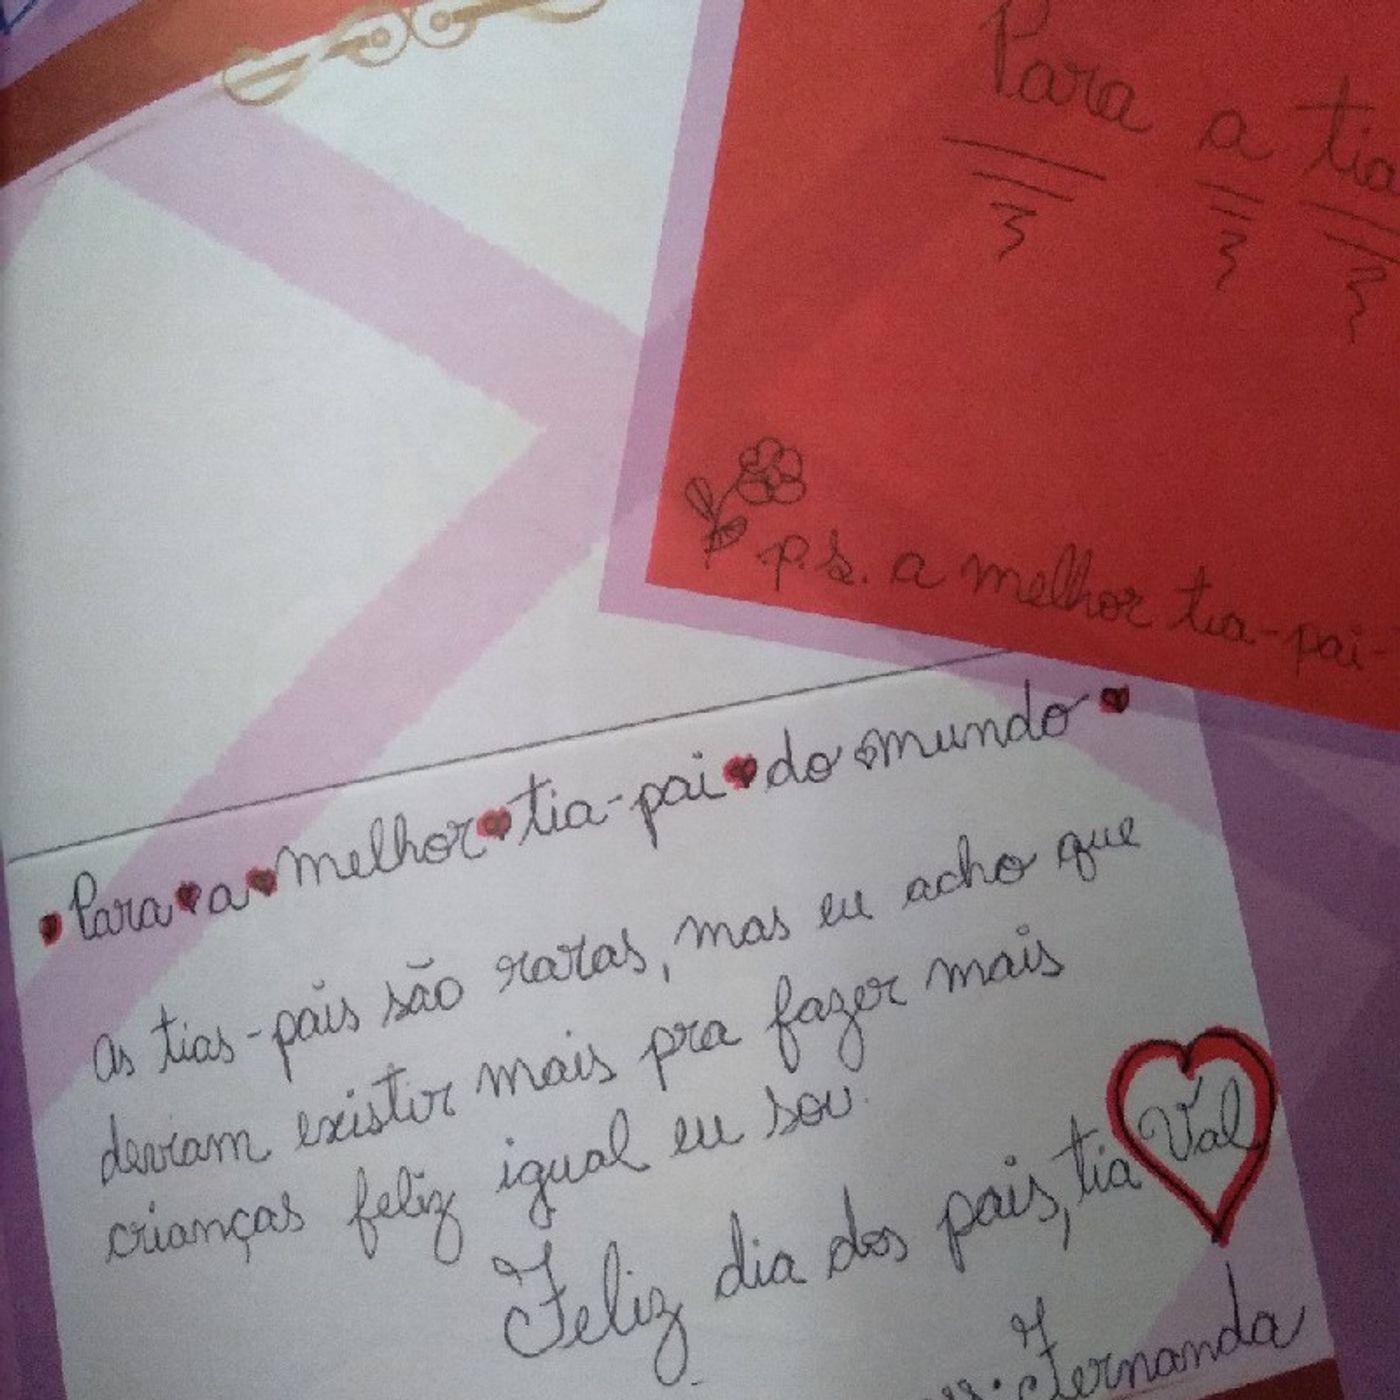 Para a tia
p.s. a melhor tia-pai-
Para a melhor tia-pai do mundo
As tias-pais são raras, mas eu acho que
deviam existir mais pra fazer mais
crianças feliz igual eu sou.
Feliz dia dos pais, tia Val
Fernanda